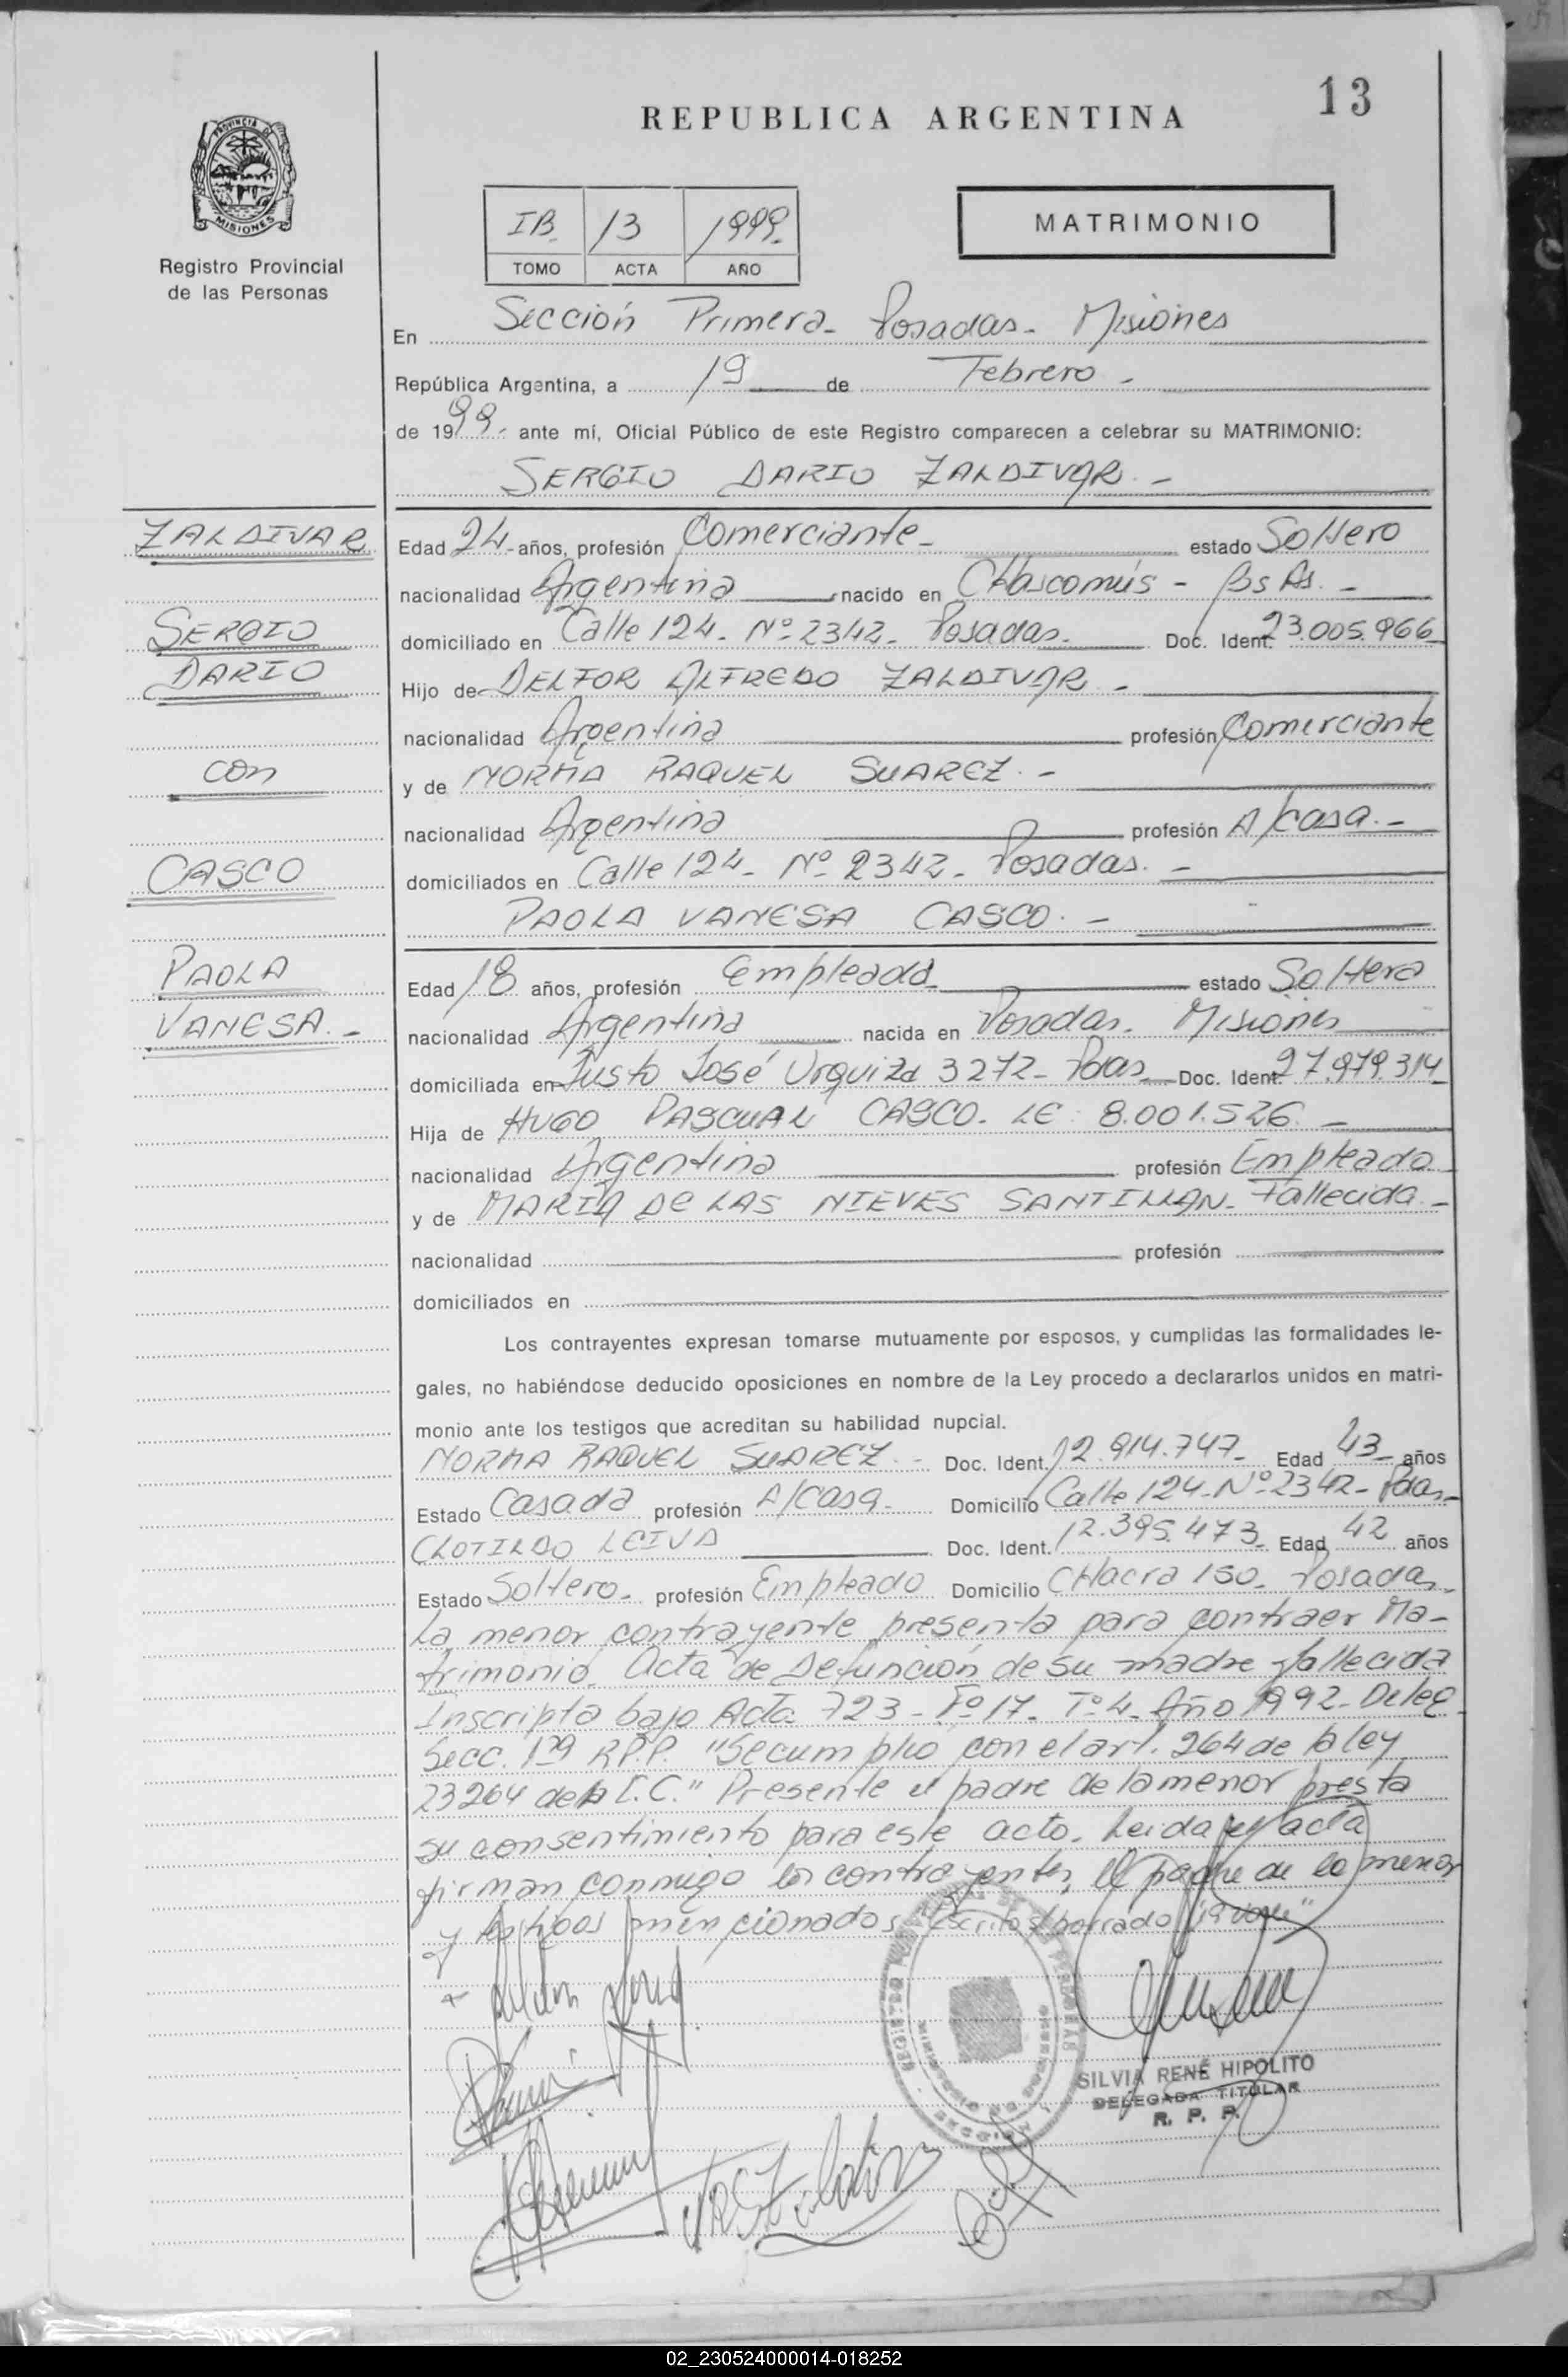 13
REPUBLICA ARGENTINA
PROVINCIA DE
MISIONES
Registro Provincial
de las Personas
IB. 13 1999.
TOMO ACTA AÑO
MATRIMONIO
En Sección Primera - Posadas - Misiones
República Argentina, a 19 de Febrero -
de 1999 - ante mí, Oficial Público de este Registro comparecen a celebrar su MATRIMONIO:
SERGIO DARIO ZALDIVAR. -
ZALDIVAR
SERGIO
DARIO
con
CASCO
PAOLA
VANESA. -
Edad 24 - años, profesión Comerciante - estado Soltero
nacionalidad Argentina nacido en CHascomús - Bs As. -
domiciliado en Calle 124 - Nº 2342 - Posadas. Doc. Ident. 23.005.966
Hijo de DELFOR ALFREDO ZALDIVAR -
nacionalidad Argentina profesión Comerciante
y de NORMA RAQUEL SUAREZ. -
nacionalidad Argentina profesión A/casa. -
domiciliados en Calle 124 - Nº 2342 - Posadas. -
PAOLA VANESA CASCO. -
Edad 18 años, profesión Empleada estado Soltera
nacionalidad Argentina nacida en Posadas. Misiones
domiciliada en Justo José Urquiza 3272 - Pdas Doc. Ident. 27.979.314
Hija de HUGO PASCUAL CASCO. LE 8.001.526. -
nacionalidad Argentina profesión Empleado
y de MARIA DE LAS NIEVES SANTILLAN - Fallecida -
nacionalidad profesión
domiciliados en
Los contrayentes expresan tomarse mutuamente por esposos, y cumplidas las formalidades le-
gales, no habiéndose deducido oposiciones en nombre de la Ley procedo a declararlos unidos en matri-
monio ante los testigos que acreditan su habilidad nupcial.
NORMA RAQUEL SUAREZ. - Doc. Ident. 12.914.747 - Edad 43 - años
Estado Casada profesión A/casa - Domicilio Calle 124 - Nº 2342 - Pdas -
CLOTILDO LEIVA Doc. Ident. 12.395.473 - Edad 42 años
Estado Soltero - profesión Empleado Domicilio CHacra 150 - Posadas -
La menor contrayente presenta para contraer Ma-
trimonio Acta de Defunción de su madre fallecida
Inscripta bajo Acta 723 - Fº 17 - Tº 4 - Año 1992 - Deleg
Secc. 1ra R.P.P. "Se cumplio con el art. 264 de la ley
23264 de la C.C." Presente el padre de la menor presta
su consentimiento para este acto. Leida el acta
firman conmigo los contrayentes, el padre de la menor
y testigos mencionados. Escrito s/borrado
SILVIA RENÉ HIPOLITO
DELEGADA TITULAR
R. P. P.
02_230524000014-018252